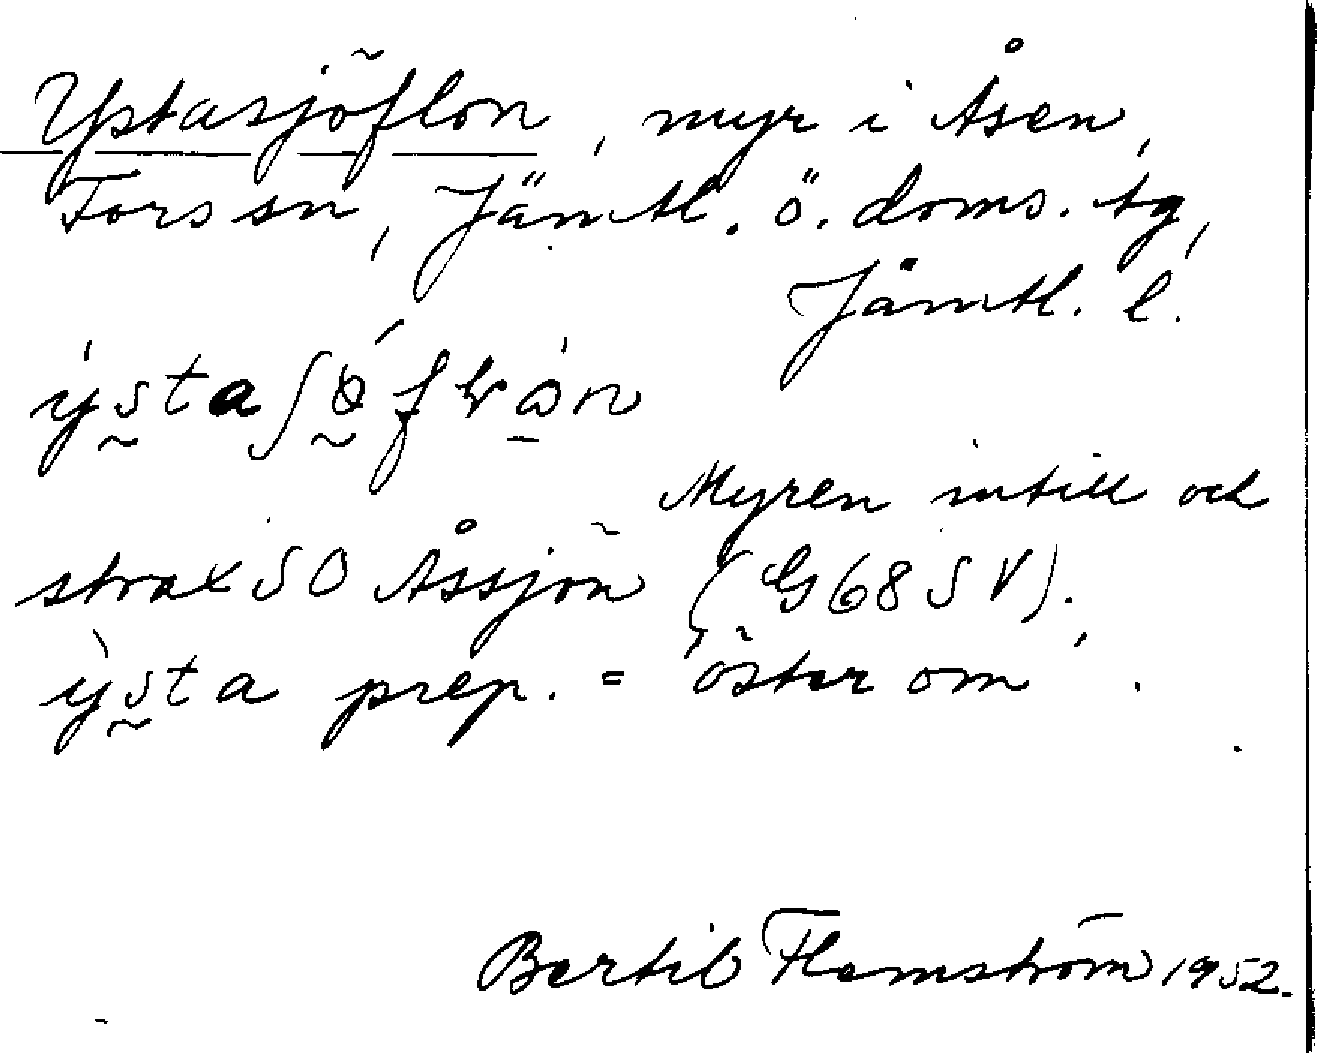 Ystasjöflon, myr i Åsen,
Fors sn, Jämtl. ö. doms. tg,
Jämtl. l.
Myren intill och
strax SO Åssjön (G68SV).
ỳsta prep. = 'öster om'.
Bertil Flemström 1952.